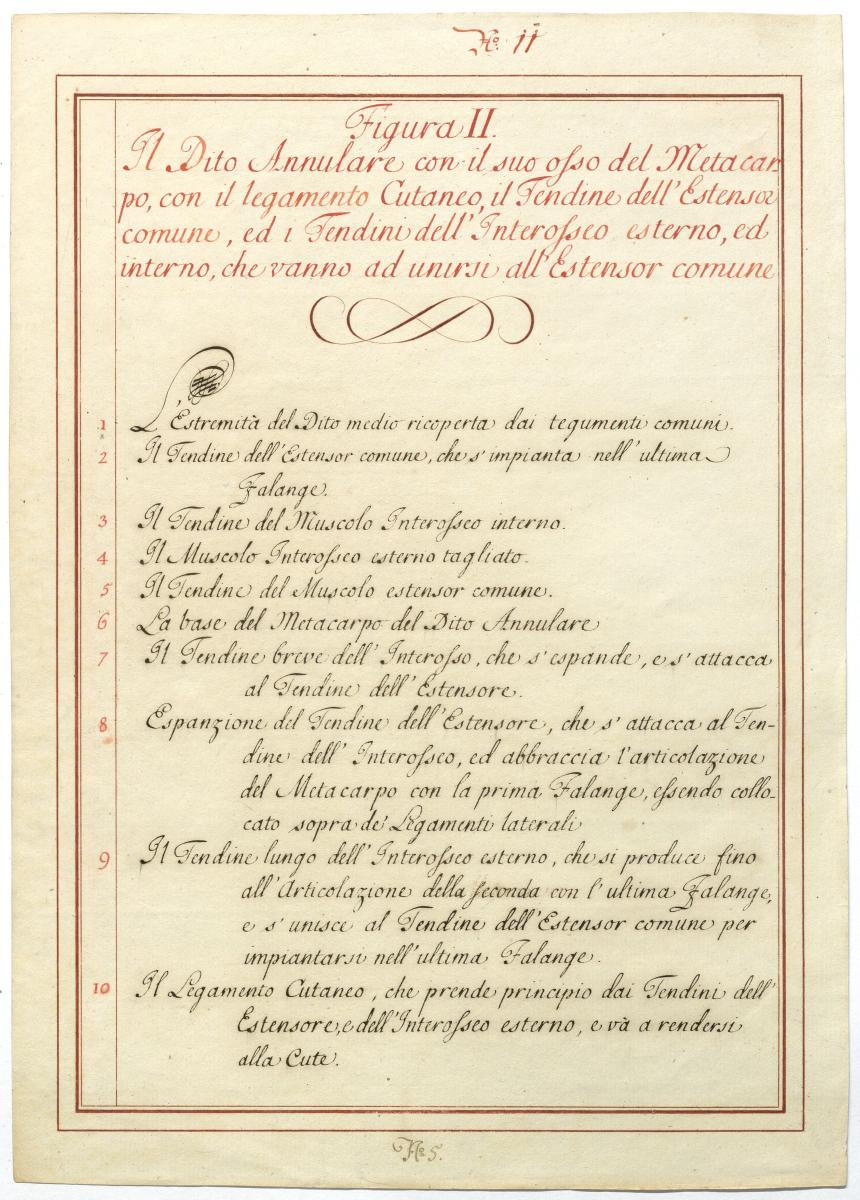 No. 11
Figura II.
Il Dito Annulare con il suo osso del Metacar
po, con il legamento Cutaneo, il Tendine dell'Estensor
comune, ed i Tendini dell'Interosseo esterno, ed
interno, che vanno ad unirsi all'Estensor comune
1 L'Estremità del Dito medio ricoperta dai tegumenti comuni.
2 Il Tendine dell'Estensor comune, che s'impianta nell'ultima
Falange.
3 Il Tendine del Muscolo Interosseo interno.
4 Il Muscolo Interosseo esterno tagliato.
5 Il Tendine del Muscolo estensor comune.
6 La base del Metacarpo del Dito Annulare
7 Il Tendine breve dell'Interosso, che s'espande, e s'attacca
al Tendine dell'Estensore.
8 Espanzione del Tendine dell'Estensore, che s'attacca al Ten-
dine dell'Interosseo, ed abbraccia l'articolazione
del Metacarpo con la prima Falange, essendo collo-
cato sopra de' Legamenti laterali
9 Il Tendine lungo dell'Interosseo esterno, che si produce fino
all'Articolazione della seconda con l'ultima Falange,
e s'unisce al Tendine dell'Estensor comune per
impiantarsi nell'ultima Falange.
10 Il Legamento Cutaneo, che prende principio dai Tendini dell'
Estensore, e dell'Interosseo esterno, e và a rendersi
alla Cute.
No. 5.